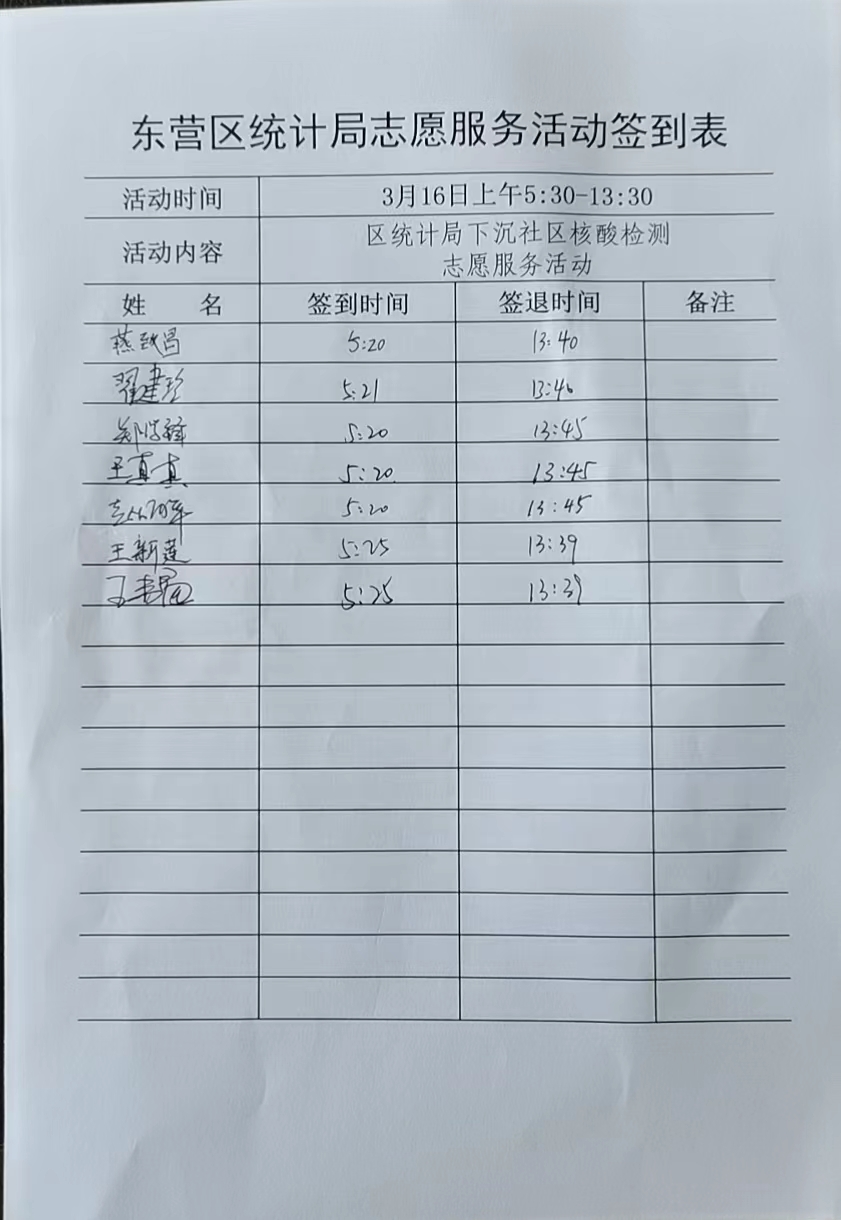 东营区统计局志愿服务活动签到表
活动时间 3月16日上午5:30-13:30
活动内容 区统计局下沉社区核酸检测
志愿服务活动
姓 名 签到时间 签退时间 备注
5:20 13:40
翟建珍 5:21 13:40
5:20 13:45
王真真 5:20 13:45
5:20 13:45
王新莲 5:25 13:39
5:25 13:39